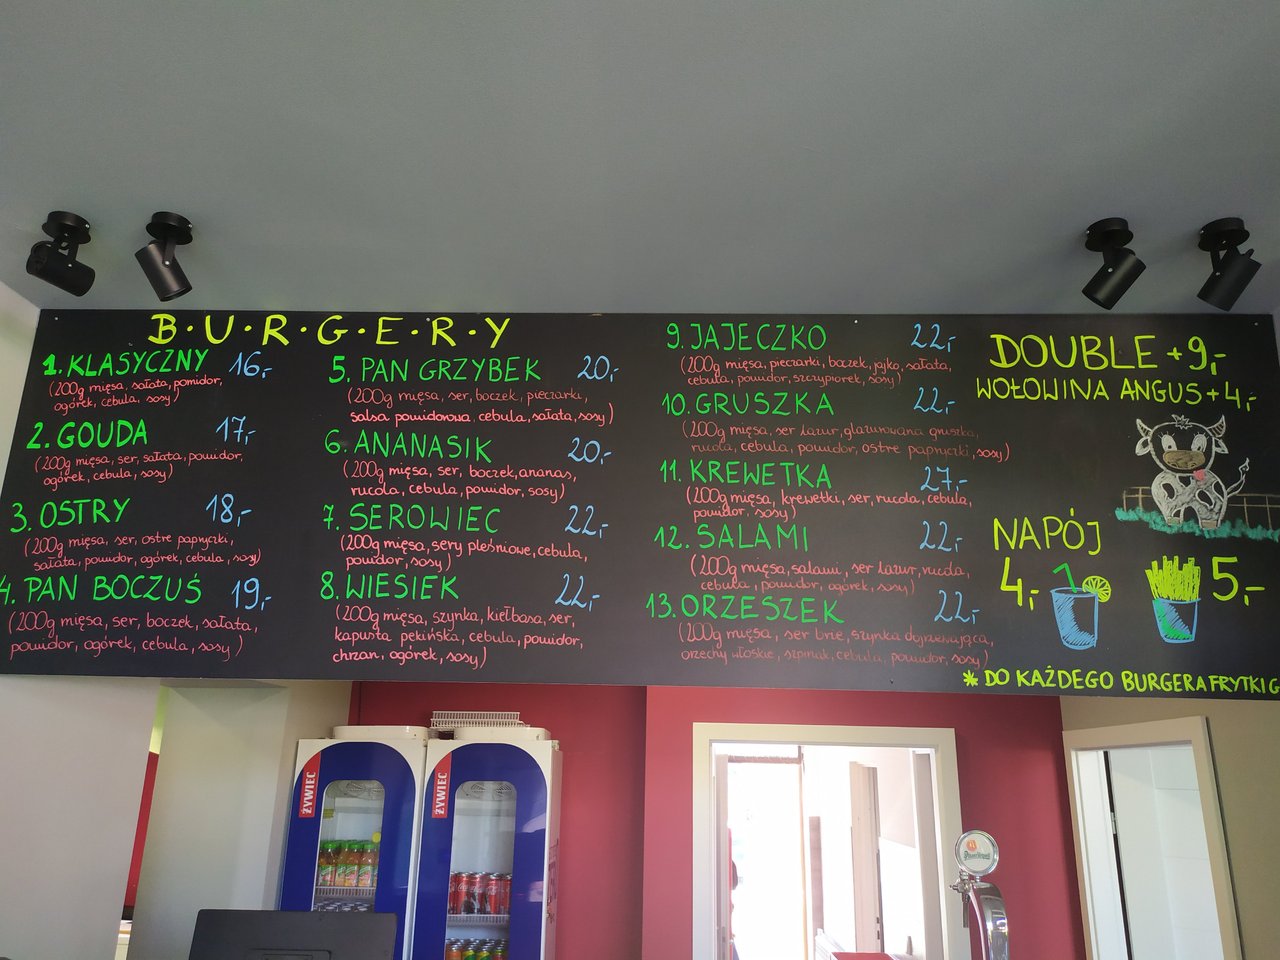 B·U·R·G·E·R·Y
1. KLASYCZNY 16,-
(200g mięsa, sałata, pomidor,
ogórek, cebula, sosy)
2. GOUDA 17,-
(200g mięsa, ser, sałata, pomidor,
ogórek, cebula, sosy)
3. OSTRY 18,-
(200g mięsa, ser, ostre papryczki,
sałata, pomidor, ogórek, cebula, sosy)
4. PAN BOCZUŚ 19,-
(200g mięsa, ser, boczek, sałata,
pomidor, ogórek, cebula, sosy)
5. PAN GRZYBEK 20,-
(200g mięsa, ser, boczek, pieczarki,
salsa pomidorowa, cebula, sałata, sosy)
6. ANANASIK 20,-
(200g mięsa, ser, boczek, ananas,
rucola, cebula, pomidor, sosy)
7. SEROWIEC 22,-
(200g mięsa, sery pleśniowe, cebula,
pomidor, sosy)
8. WIESIEK 22,-
(200g mięsa, szynka, kiełbasa, ser,
kapusta pekińska, cebula, pomidor,
chrzan, ogórek, sosy)
9. JAJECZKO 22,-
(200g mięsa, pieczarki, boczek, jajko, sałata,
cebula, pomidor, szczypiorek, sosy)
10. GRUSZKA 22,-
(200g mięsa, ser lazur, glazurowana gruszka,
rucola, cebula, pomidor, ostre papryczki, sosy)
11. KREWETKA 27,-
(200g mięsa, krewetki, ser, rucola, cebula,
pomidor, sosy)
12. SALAMI 22,-
(200g mięsa, salami, ser lazur, rucola,
cebula, pomidor, ogórek, sosy)
13. ORZESZEK 22,-
(200g mięsa, ser brie, szynka dojrzewająca,
orzechy włoskie, szpinak, cebula, pomidor, sosy)
DOUBLE +9,-
WOŁOWINA ANGUS +4,-
NAPÓJ
4,- 5,-
* DO KAŻDEGO BURGERA FRYTKI G
ŻYWIEC
ŻYWIEC